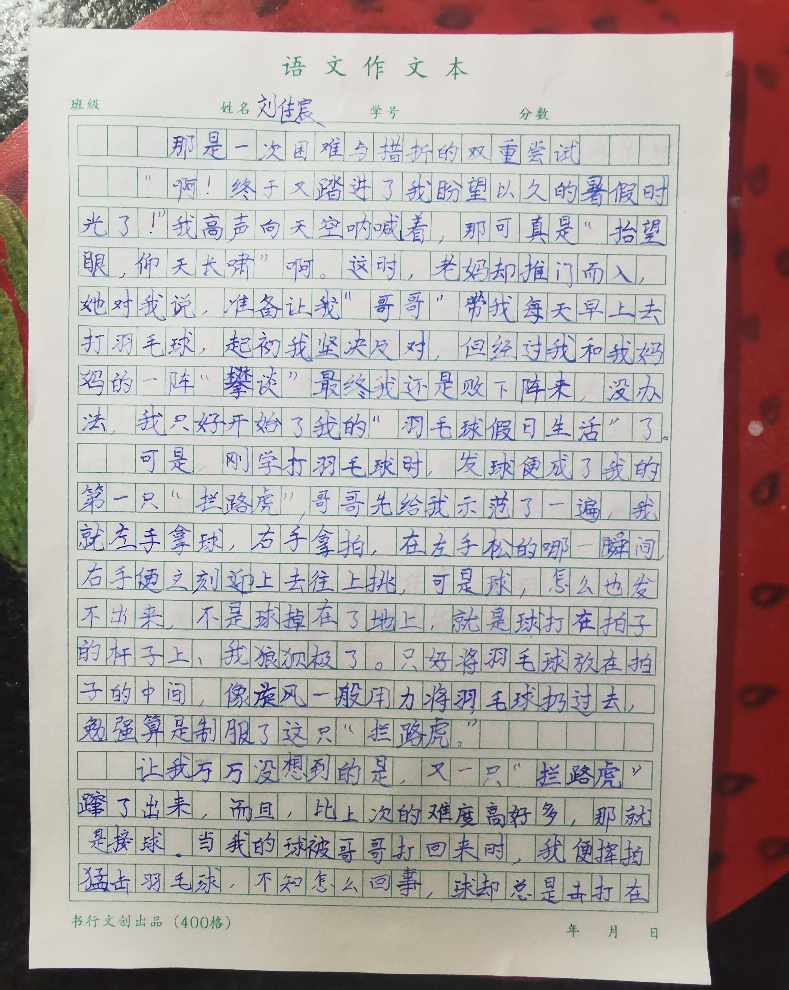 语文作文本
班级 姓名 刘佳宸 学号 分数
那是一次困难与措折的双重尝试
“啊！终于又踏进了我盼望以久的暑假时
光了！”我高声向天空呐喊着，那可真是“抬望
眼，仰天长啸”啊。这时，老妈却推门而入，
她对我说，准备让我“哥哥”带我每天早上去
打羽毛球，起初我坚决反对，但经过我和我妈
妈的一阵“攀谈”最终我还是败下阵来，没办
法，我只好开始了我的“羽毛球假日生活”了。
可是，刚学打羽毛球时，发球便成了我的
第一只“拦路虎”，哥哥先给我示范了一遍，我
就左手拿球，右手拿拍，在左手松的哪一瞬间，
右手便立刻迎上去往上挑，可是球，怎么也发
不出来，不是球掉在了地上，就是球打在拍子
的杆子上、我狼狈极了。只好将羽毛球放在拍
子的中间，像旋风一般用力将羽毛球扔过去，
勉强算是制服了这只“拦路虎。”
让我万万没想到的是，又一只“拦路虎”
蹿了出来，而且，比上次的难度高好多，那就
是接球．当我的球被哥哥打回来时，我便挥拍
猛击羽毛球，不知怎么回事，球却总是击打在
书行文创出品（400格） 年 月 日